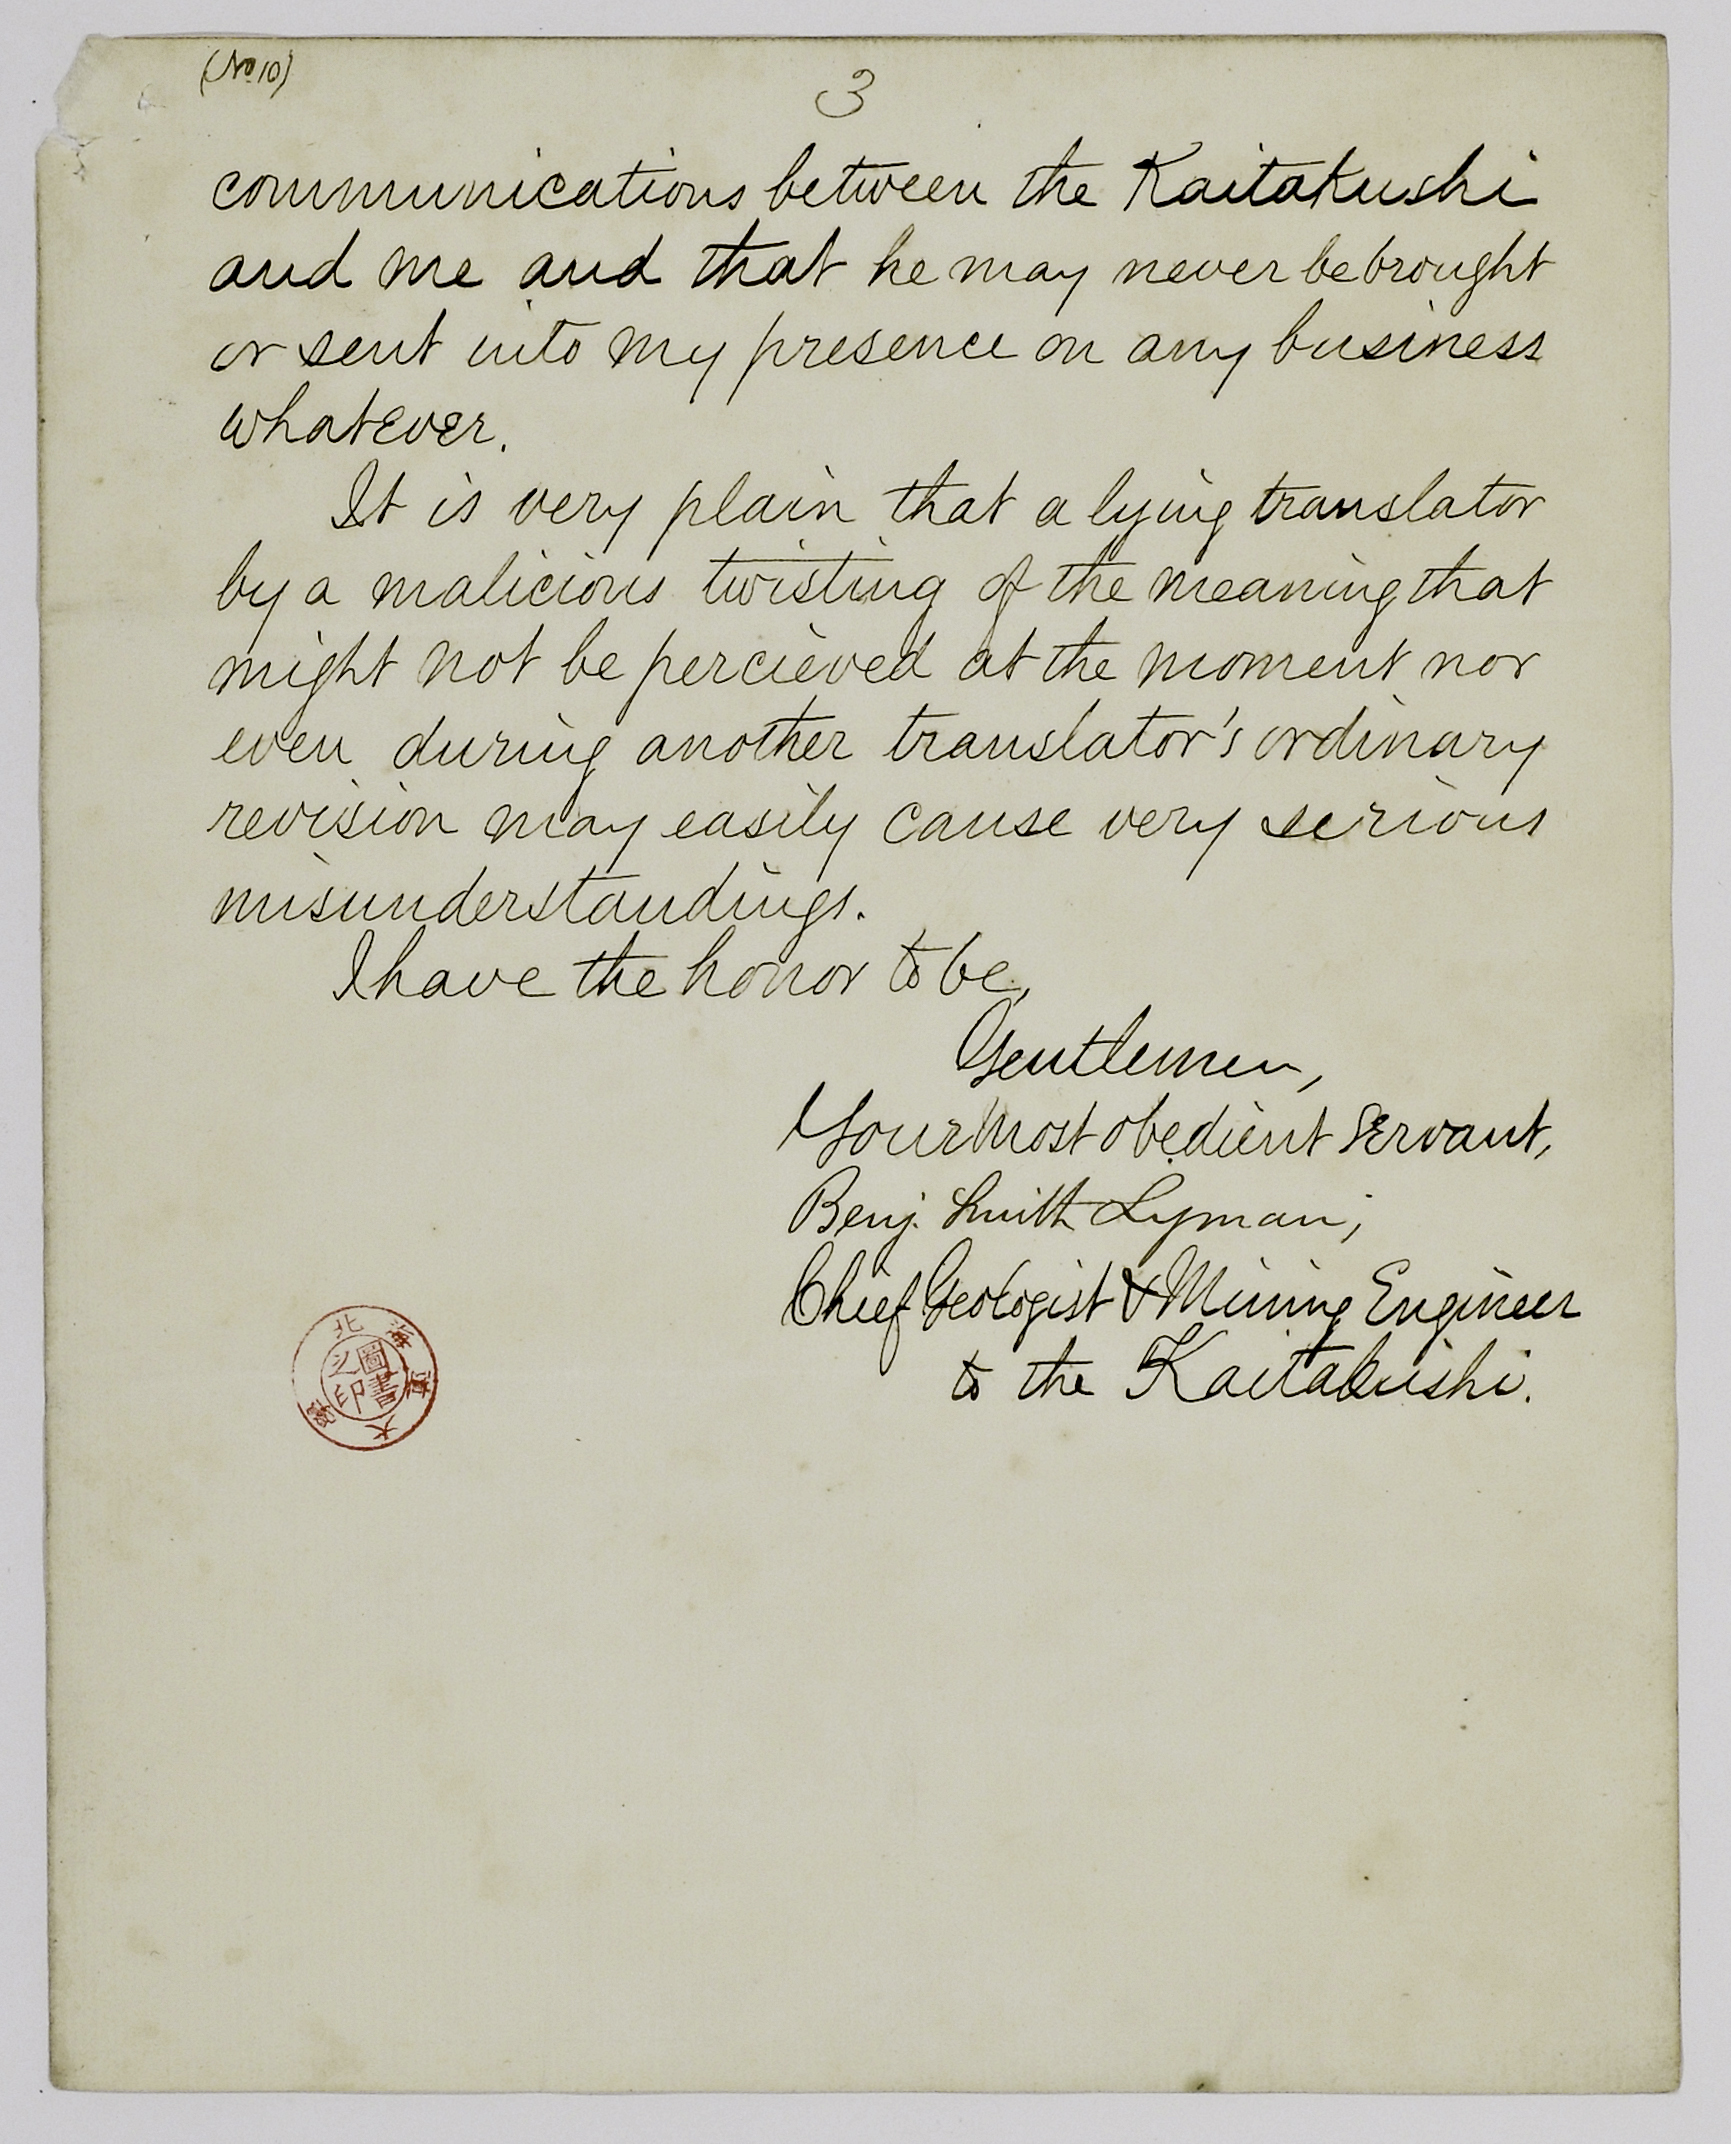 (No 10)
3
communications between the Kaitakushi
and me and that he may never be brought
or sent into my presence on any business
whatever.
It is very plain that a lying translator
by a malicious twisting of the meaning that
might not be percieved at the moment nor
even during another translator's ordinary
revision may easily cause very serious
misunderstandings.
I have the honor to be,
Gentlemen,
Your most obedient servant,
Benj. Smith Lyman,
Chief Geologist & Mining Engineer
to the Kaitakushi.
北海道大學
圖書
之印